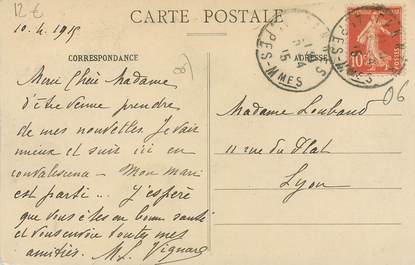 12 €
CARTE POSTALE
10.4.1915
CORRESPONDANCE
ADRESSE
Merci Chère Madame
d'être venue prendre
de mes nouvelles Je vais
mieux et suis ici en
convalescence - Mon mari
est parti ... J'espère
que vous êtes en bonne santé
et vous envoie toutes mes
amitiés. M. L. Vignard
Madame Loubaud
11 rue du Plat
Lyon
06
10
POSTES